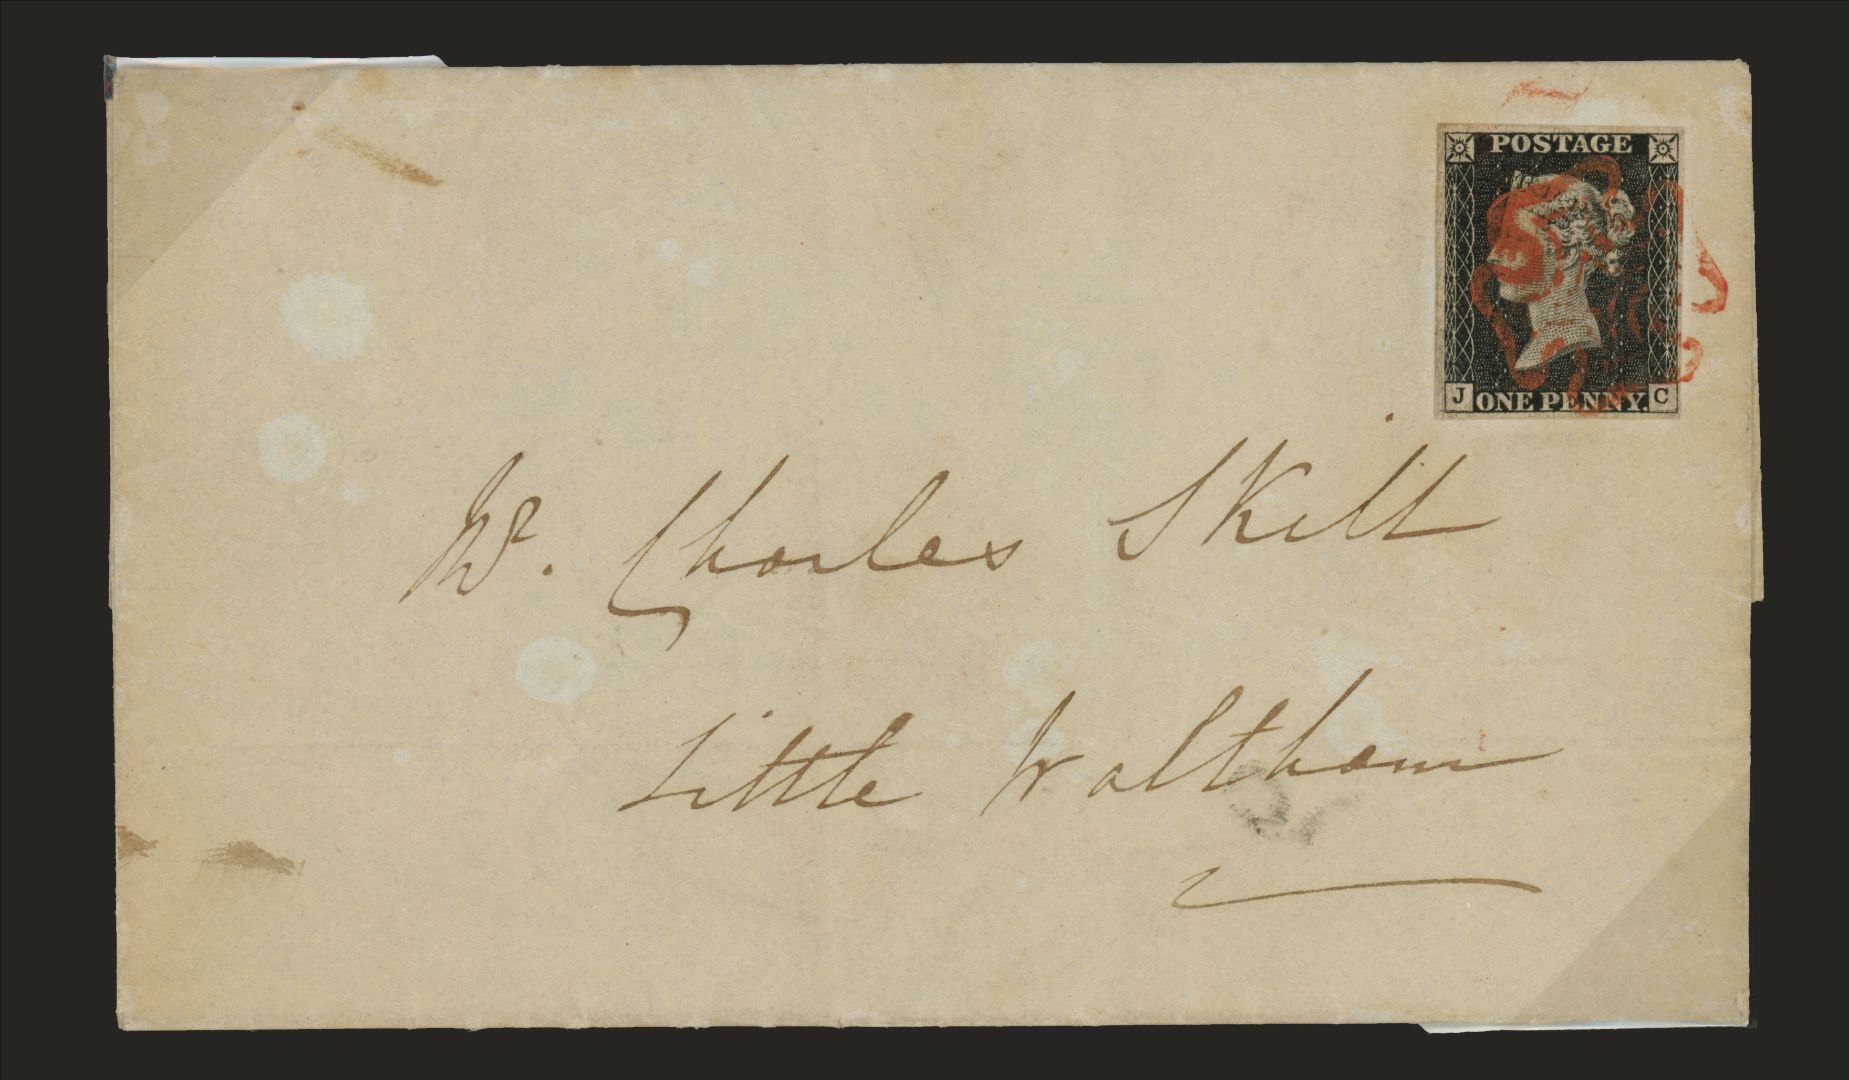 POSTAGE
J ONE PENNY. C
Mr. Charles Skill
Little Waltham